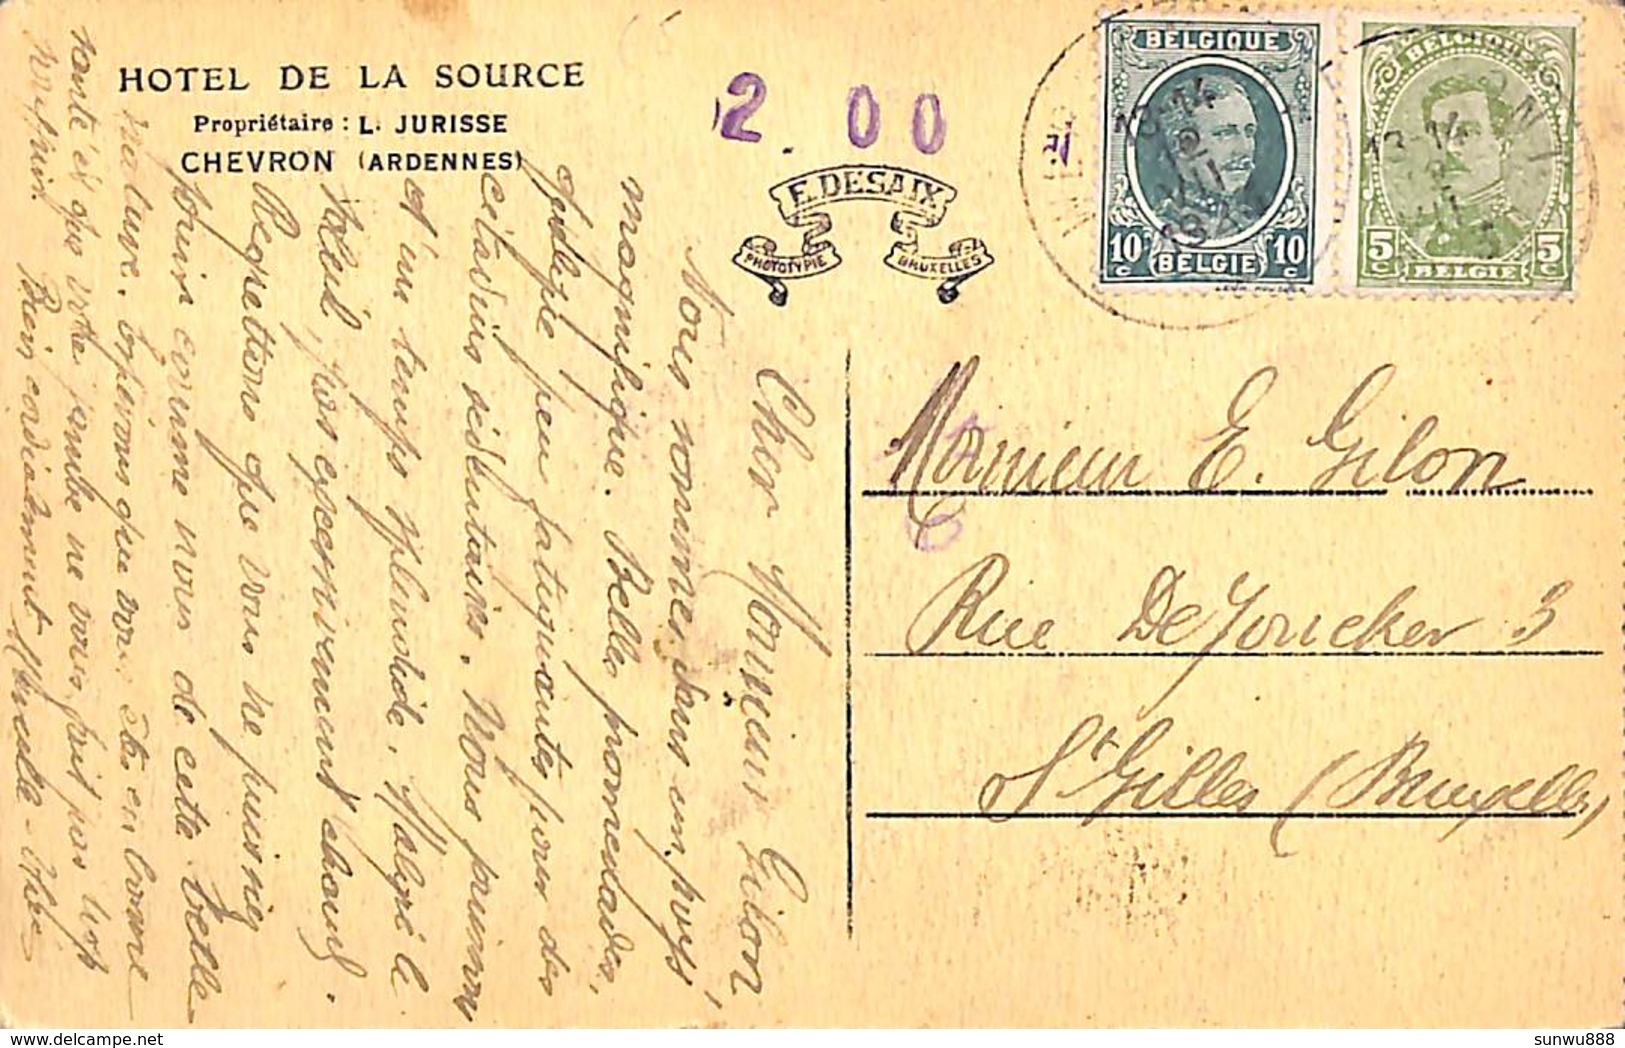 HOTEL DE LA SOURCE
Propriétaire : L. JURISSE
CHEVRON (ARDENNES)
2.00
E. DESAIX
PHOTOTYPIE
BRUXELLES
BELGIQUE
10c 10c
BELGIË
BELGIQUE
5c 5c
BELGIË
Cher Monsieur Gilon,
Nous sommes dans un pays
magnifique. Belles promenades,
quoique peu fatiguantes pour des
citadins sédentaires. Nous jouissons
d'un temps splendide. Malgré le
soleil, pas excessivement chaud.
Regrettons que vous ne puissiez
jouir comme nous de cette belle
nature. Espérons que vous êtes en bonne
santé et que votre jambe ne vous fait pas trop
souffrir.
Bien cordialement
Monsieur E. Gilon
Rue De Joncker 3
St Gilles (Bruxelles)
sunwu888